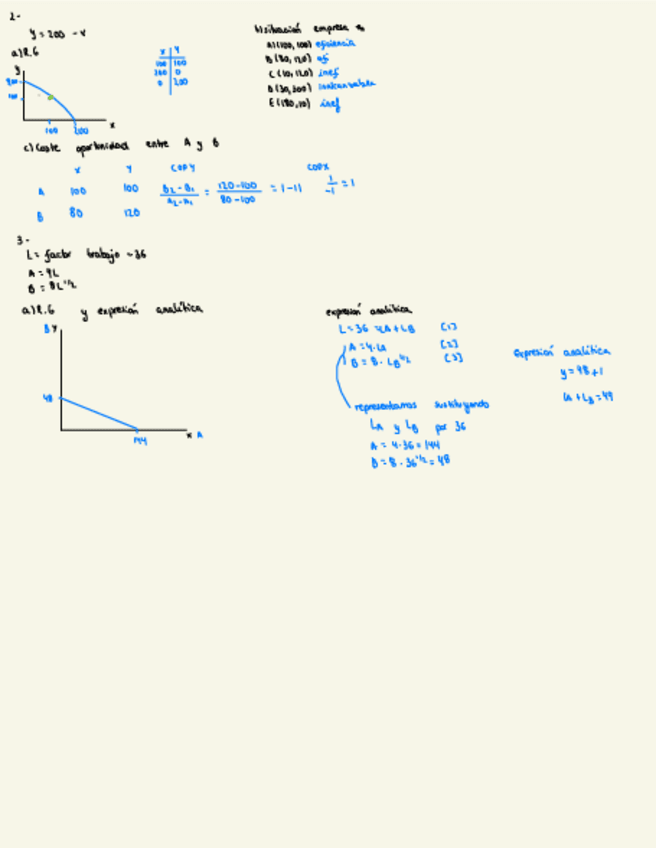 2-
y = 200 - x
a) R.G
x y
100 100
200 0
0 200
y
200
100
100 200 x
b) situación empresa
A (100, 100) eficiencia
B (80, 120) efi
C (10, 120) inef
D (30, 300) inalcanzable
E (180, 10) inef
c) Coste oportunidad entre A y B
x y COPY COPX
A 100 100 B2-B1/A2-A1 = 120-100/80-100 = |-1| 1/-1 = 1
B 80 120
3-
L = factor trabajo = 36
A = 4L
B = 8L^1/2
a) R.G y expresión analítica
B y
48
144 x A
expresión analítica
L = 36 = LA + LB [1]
A = 4·LA [2]
B = 8·LB^1/2 [3]
representamos sustituyendo
LA y LB por 36
A = 4·36 = 144
B = 8·36^1/2 = 48
expresión analítica
y = 48 + 1
LA + LB = 49